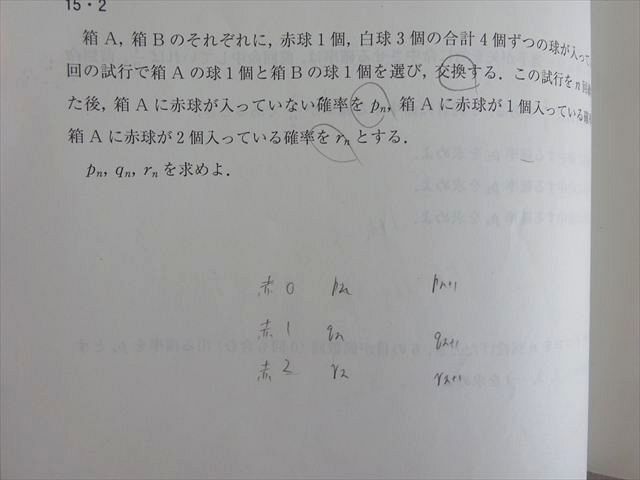 15・2
箱 A, 箱 B のそれぞれに, 赤球 1 個, 白球 3 個の合計 4 個ずつの球が入って
回の試行で箱 A の球 1 個と箱 B の球 1 個を選び, 交換する. この試行を n 回
た後, 箱 A に赤球が入っていない確率を pn, 箱 A に赤球が 1 個入っている確率
箱 A に赤球が 2 個入っている確率を rn とする.
pn, qn, rn を求めよ.
赤 0 pn pn+1
赤 1 qn qn+1
赤 2 rn rn+1